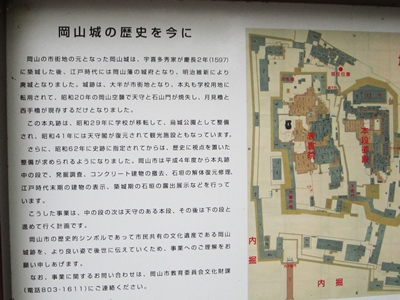 岡山城の歴史を今に
岡山の市街地の元となった岡山城は、宇喜多秀家が慶長2年(1597)
に築城した後、江戸時代には岡山藩の城府となり、明治維新により
廃城となりました。城跡は、大半が市街地となり、本丸も学校用地に
転用されて、昭和20年の岡山空襲で天守と石山門が焼失し、月見櫓と
西手櫓が現存するだけとなりました。
この本丸跡は、昭和29年に学校が移転して、烏城公園として整備
され、昭和41年には天守閣が復元されて観光施設ともなっています。
さらに、昭和62年に史跡に指定されてからは、歴史に視点を置いた
整備が求められるようになりました。岡山市は平成4年度から本丸跡
中の段で、発掘調査、コンクリート建物の撤去、石垣の解体復元修理、
江戸時代末期の建物の表示、築城期の石垣の露出展示などを行って
います。
こうした事業は、中の段の次は天守のある本段、その後は下の段と
進めて行く計画です。
岡山市の歴史的シンボルであって市民共有の文化遺産である岡山
城跡を、より良い姿で後世に伝えていくため、事業へのご理解をお
願い申しあげます。
なお、事業に関するお問い合わせは、岡山市教育委員会文化財課
(電話803-1611)にご連絡ください。
表書院
本段御殿
内堀
内堀